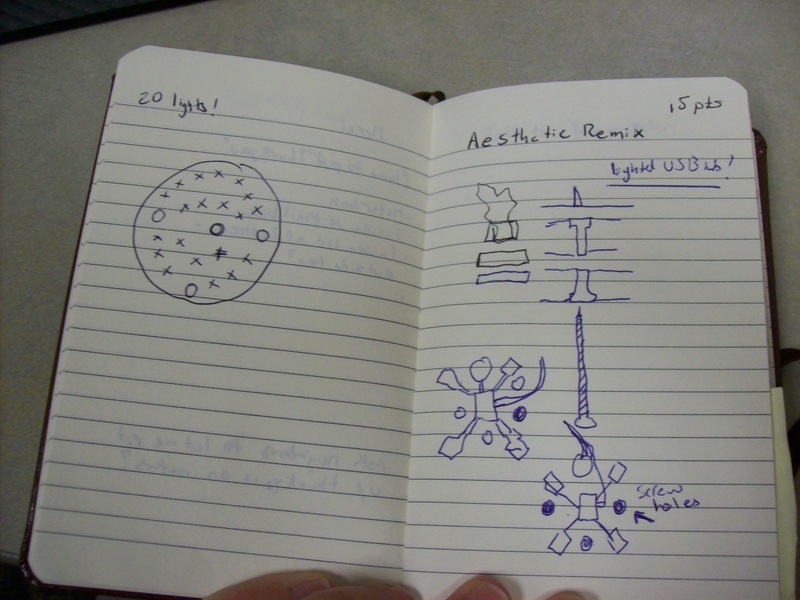 20 lights!
15 pts
Aesthetic Remix
lighted USB hub!
screw
holes